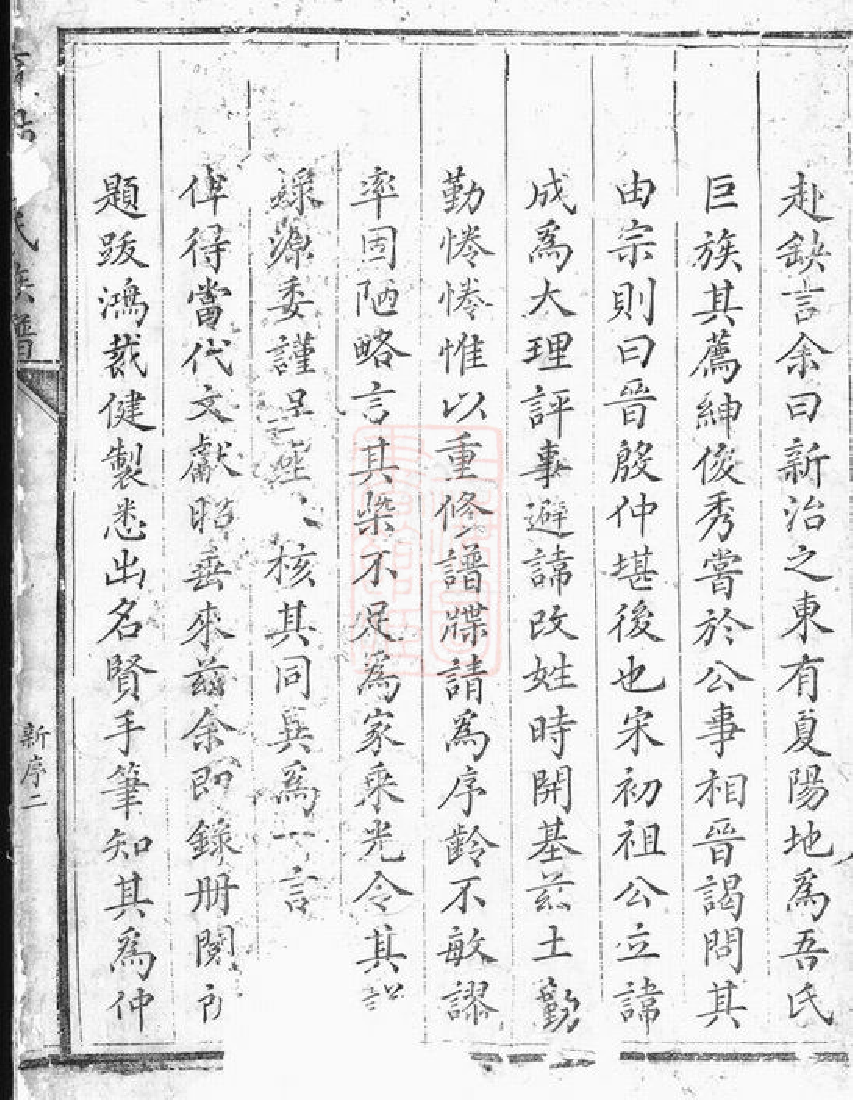 赴缺言余曰新治之東有夏陽地為吾氏
巨族其薦紳俊秀嘗於公事相晉謁問其
由宗則曰晉殷仲堪後也宋初祖公立諱
成為大理評事避諱改姓時開基茲土勤
勤惓惓惟以重修譜牒請為序齡不敏謬
率固陋略言其槩不足為家乘光令其
源委謹呈 核其同異為一言
俾得當代文獻昭垂來茲余即錄冊閱
題跋鴻裁健製悉出名賢手筆知其為仲
氏族譜
新序二